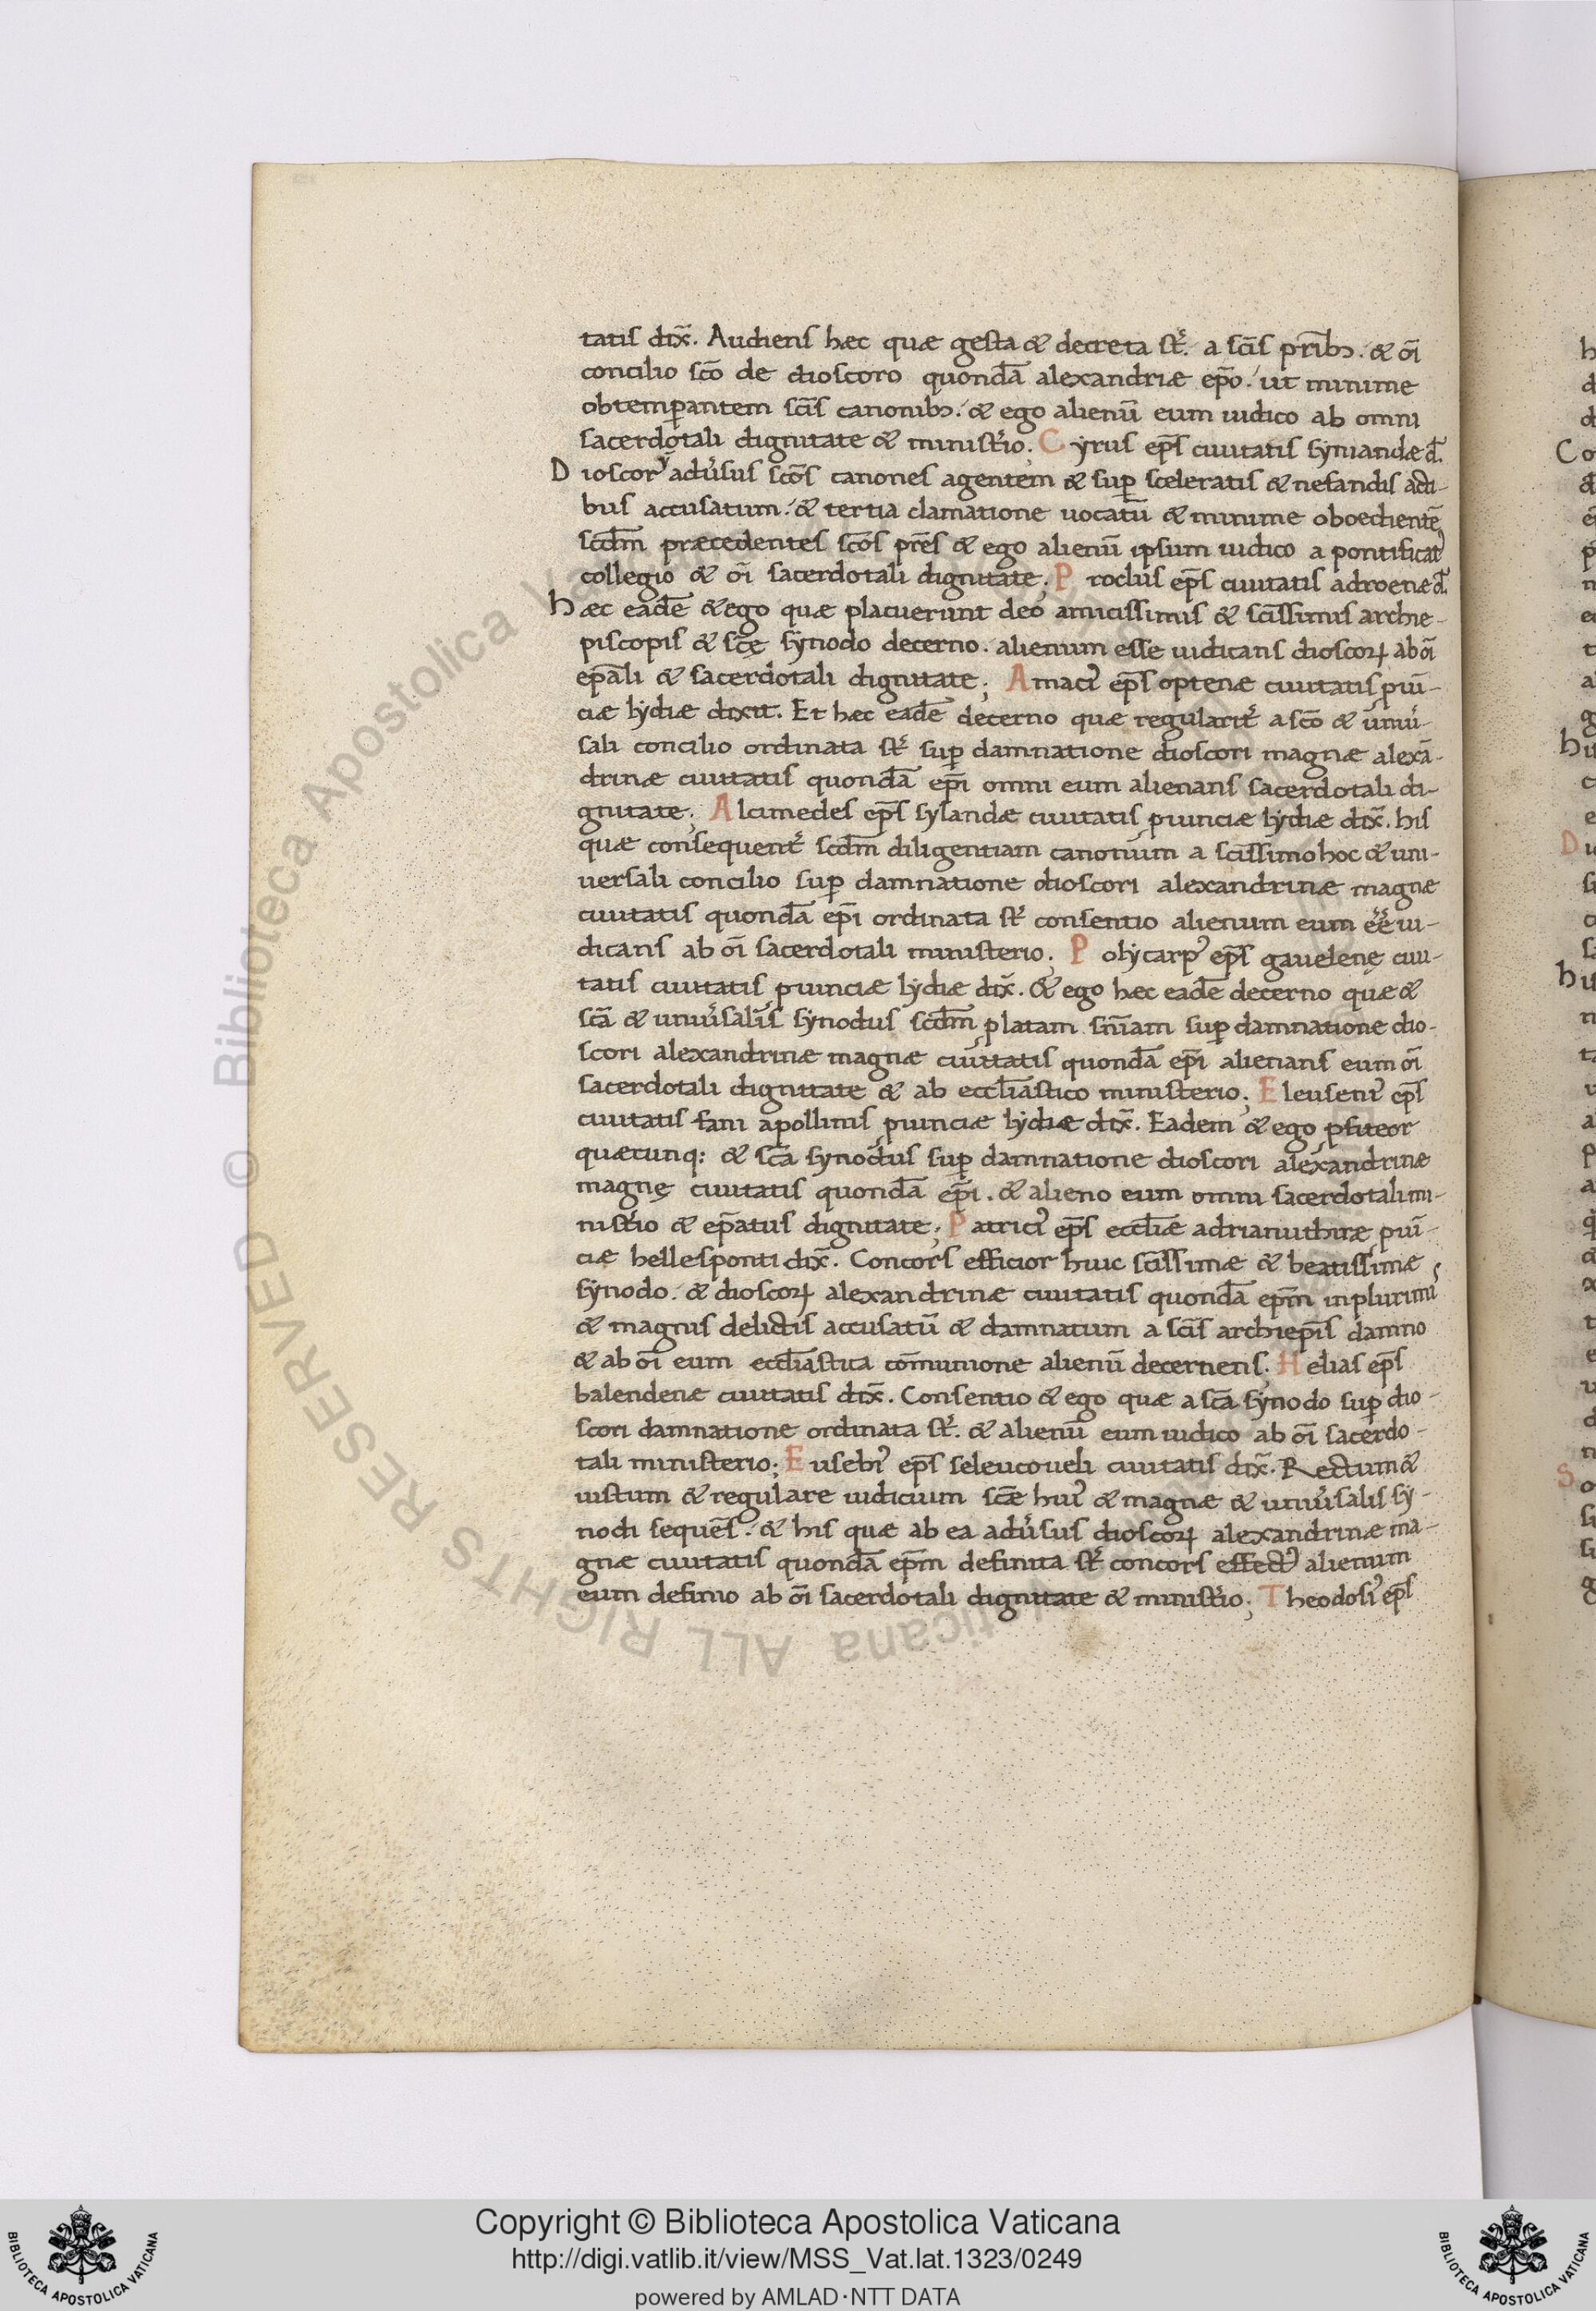 tatis dix̃. Audiens hæc quæ gesta & decreta st̃. a sc̃is prĩbȝ. & oĩ
concilio sc̃o de dioscoro quondã alexandriæ ep̃o. ut minime
obtemꝑantem sc̃is canonibȝ. & ego alienũ eum iudico ab omni
sacerdotali dignitate & minist̃io; Cyrus ep̃s ciuitatis syniandæ d̃.
Dioscorꝰ adũsus sc̃os canones agentem & suꝑ sceleratis & nefandis acti-
bus accusatum. & tertia clamatione uocatũ & minime oboedientẽ
scd̃m præcedentes sc̃os pr̃es & ego alienũ ipsum iudico a pontificatꝰ
collegio & oĩ sacerdotali dignitate; Proclus ep̃s ciuitatis adroenæ d̃.
hæc eadẽ & ego quæ placuerunt deo amicissimis & sc̃issimis archie-
piscopis & sc̃ę synodo decerno. alienum esse iudicans dioscoꝝ ab oĩ
ep̃ali & sacerdotali dignitate; Amaciꝰ ep̃s optenæ ciuitatis ꝓuĩ-
ciæ lydiæ dixit. Et hæc eadẽ decerno quæ regularit̃ a sc̃o & uniũ-
sali concilio ordinata st̃ suꝑ damnatione dioscori magnæ alexã-
drinæ ciuitatis quondã ep̃i omni eum alienans sacerdotali di-
gnitate; Alcimedes ep̃s sylandæ ciuitatis ꝓuinciæ lydiæ dix̃. his
quæ consequent̃ scd̃m diligentiam canonum a sc̃issimo hoc & uni-
uersali concilio suꝑ damnatione dioscori alexandrinæ magnæ
ciuitatis quondã ep̃i ordinata st̃ consentio alienum eum ẽẽ iu-
dicans ab oĩ sacerdotali ministerio; Polycarpꝰ ep̃s gauelenę ciui-
tatis ciuitatis ꝓuinciæ lydiæ dix̃. & ego hæc eadẽ decerno quæ &
sc̃a & uniũsalis synodus scd̃m ꝓlatam sñiam suꝑ damnatione dio-
scori alexandrinæ magnæ ciuitatis quondã ep̃i alienans eum oĩ
sacerdotali dignitate & ab eccl̃iastico ministerio; Eleuseniꝰ ep̃s
ciuitatis fani apollinis ꝓuinciæ lydiæ dix̃. Eadem & ego ꝓfiteor
quæcunq: & sc̃a synodus suꝑ damnatione dioscori alexandrinæ
magnę ciuitatis quondã ep̃i. & alieno eum omni sacerdotali mi-
nist̃io & ep̃atus dignitate; Patriciꝰ ep̃s eccl̃iæ adrianuthiræ ꝓuĩ-
ciæ hellesponti dix̃. Concors efficior huic sc̃issimæ & beatissimæ
synodo. & dioscoꝝ alexandrinæ ciuitatis quondã ep̃m in plurimis
& magnis delictis accusatũ & damnatum a sc̃is archiep̃is damno
& ab oĩ eum eccl̃iastica cõmunione alienũ decernens; Helias ep̃s
balendenæ ciuitatis dix̃. Consentio & ego quæ a sc̃a synodo suꝑ dio-
scori damnatione ordinata st̃. & alienũ eum iudico ab oĩ sacerdo-
tali ministerio; Eusebiꝰ ep̃s seleucoueli ciuitatis dix̃. Rectum &
iustum & regulare iudicium sc̃æ huiꝰ & magnæ & uniũsalis sy-
nodi sequẽs. & his quæ ab ea adũsus dioscoꝝ alexandrinæ ma-
gnæ ciuitatis quondã ep̃m definita st̃ concors effectꝰ alienum
eum definio ab oĩ sacerdotali dignitate & minist̃io; Theodosiꝰ ep̃s
© Biblioteca Apostolica Vaticana ALL RIGHTS RESERVED
Copyright © Biblioteca Apostolica Vaticana
http://digi.vatlib.it/view/MSS_Vat.lat.1323/0249
powered by AMLAD·NTT DATA
BIBLIOTECA APOSTOLICA VATICANA
BIBLIOTECA APOSTOLICA VATICANA